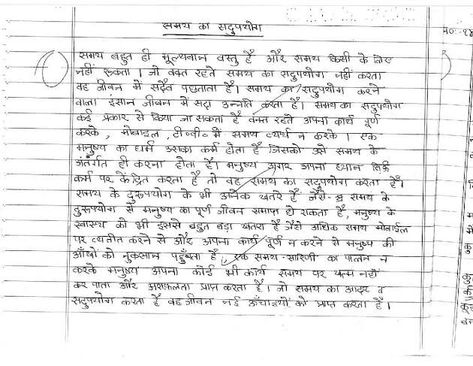 समय का सदुपयोग
समय बहुत ही मूल्यवान वस्तु है और समय किसी के लिए
नहीं रुकता। जो वक्त रहते समय का सदुपयोग नहीं करता
वह जीवन में सदैव पछताता है। समय का सदुपयोग करने
वाला इंसान जीवन में सदा उन्नति करता है। समय का सदुपयोग
कई प्रकार से किया जा सकता है वक्त रहते अपना कार्य पूर्ण
करके, मोबाइल, टी०वी० में समय व्यर्थ न करके। एक
मनुष्य का धर्म उसका कर्म होता है जिसको उसे समय के
अंतर्गत ही करना होता है। मनुष्य अगर अपना ध्यान सिर्फ
कर्म पर केंद्रित करता है तो वह समय का सदुपयोग करता है।
समय के दुरुपयोग के भी अनेक खतरे हैं जैसे- समय के
दुरुपयोग से मनुष्य का पूर्ण जीवन समाप्त हो सकता है, मनुष्य के
स्वास्थ्य को भी इससे बहुत बड़ा खतरा है जैसे अधिक समय मोबाईल
पर व्यतीत करने से और अपना कार्य पूर्ण न करने से मनुष्य की
आँखों को नुकसान पहुँचता है, एक समय-सारिणी का पालन न
करके मनुष्य अपना कोई भी कार्य समय पर खत्म नहीं
कर पाता और असफलता प्राप्त करता है। जो समय का आदर व
सदुपयोग करता है वह जीवन नई ऊँचाइयों को प्राप्त करता है।